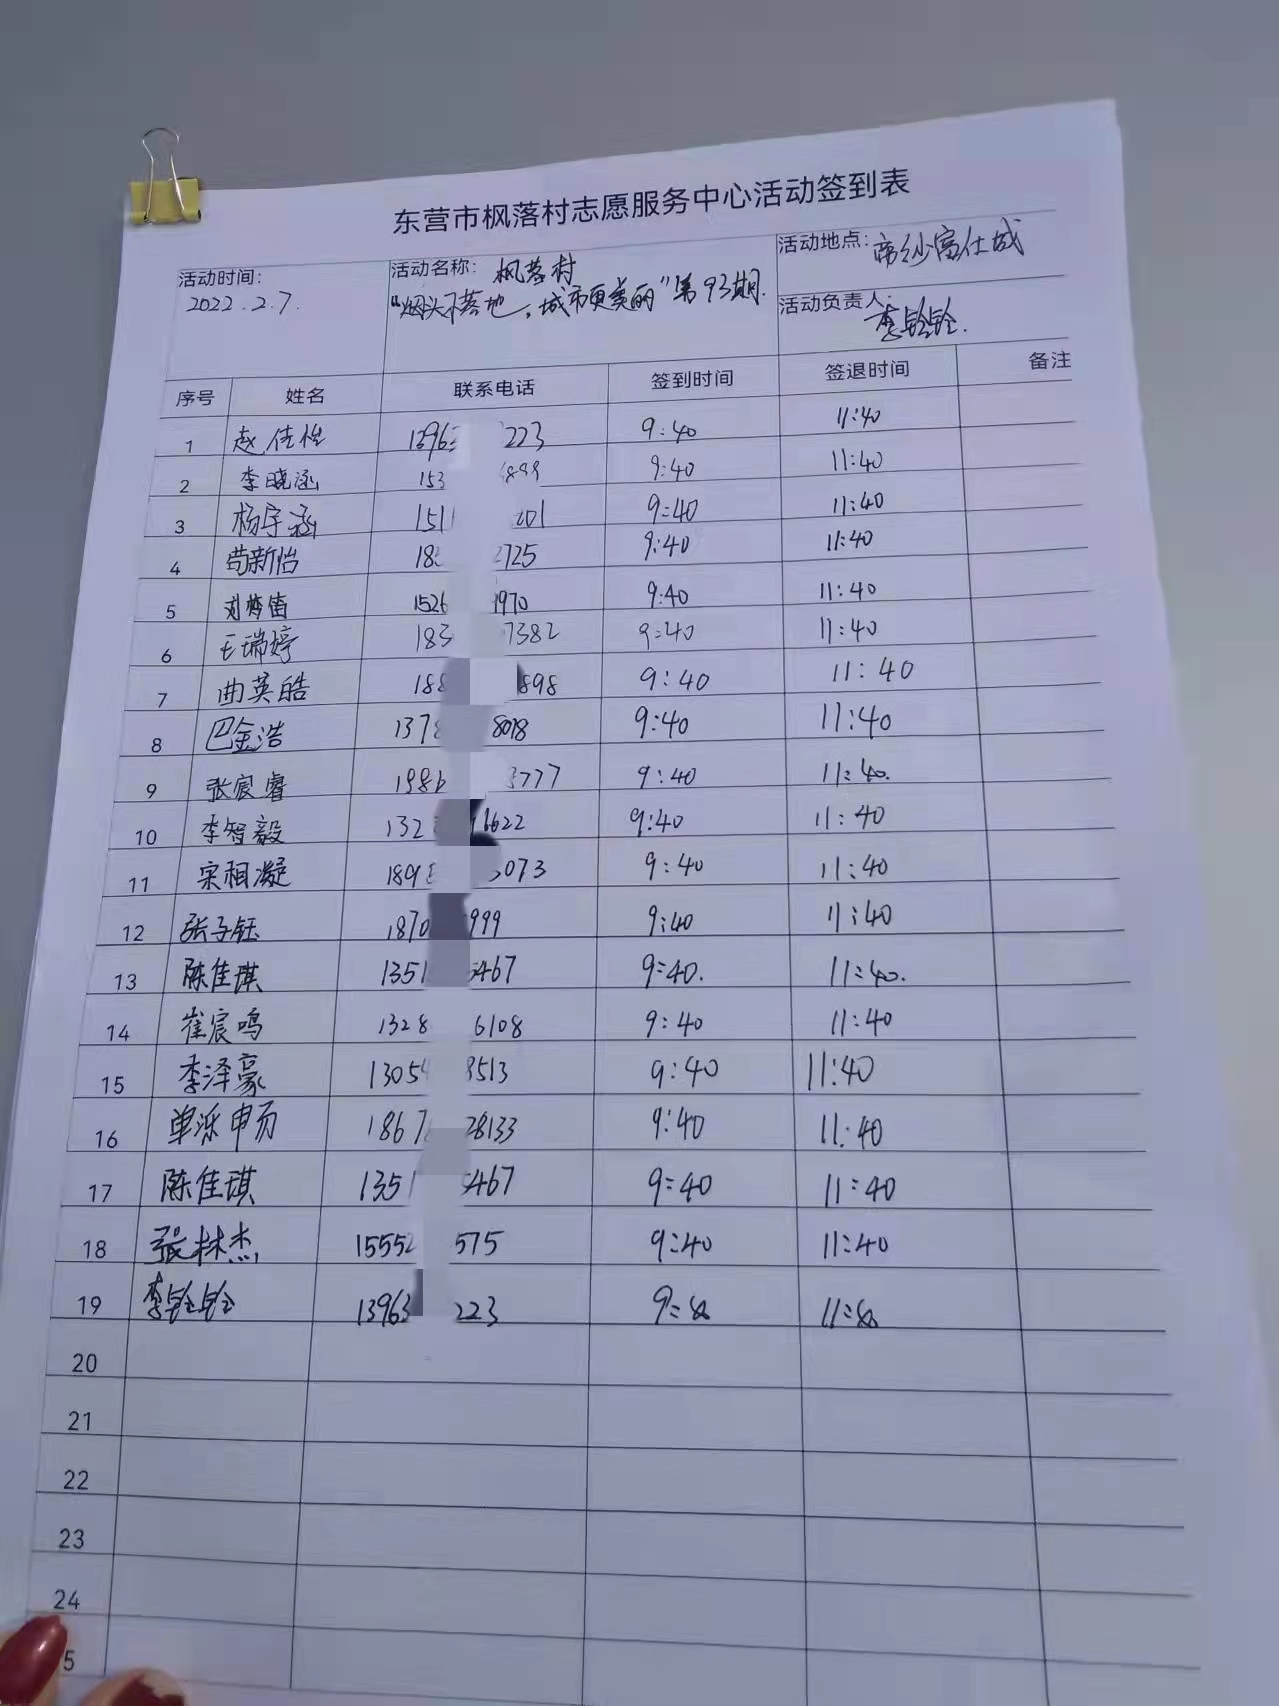 东营市枫落村志愿服务中心活动签到表
活动时间: 活动名称: 枫落村 活动地点: 帝纱富仕城
2022.2.7. “烟头不落地,城市更美丽”第93期. 活动负责人: 李铃铃.
序号 姓名 联系电话 签到时间 签退时间 备注
1 赵佳怡 1396 223 9:40 11:40
2 李晓涵 153 899 9:40 11:40
3 杨宇涵 151 201 9:40 11:40
4 苟新怡 18 2725 9:40 11:40
5 1526 1970 9:40 11:40
6 王瑞婷 183 7382 9:40 11:40
7 曲英皓 188 898 9:40 11:40
8 巴金浩 137 8018 9:40 11:40
9 张宸睿 1986 3777 9:40 11:40.
10 李智毅 132 6622 9:40 11:40
11 宋相凝 189 3073 9:40 11:40
12 张子钰 1870 999 9:40 11:40
13 陈佳琪 1351 5467 9:40. 11:40.
14 崔宸鸣 1328 6108 9:40 11:40
15 李泽豪 1305 3513 9:40 11:40
16 单泺申 1867 28133 9:40 11:40
17 陈佳琪 1351 5467 9:40 11:40
18 张林杰 15552 575 9:40 11:40
19 李铃铃 13963 223 9:40 11:40
20
21
22
23
24
5